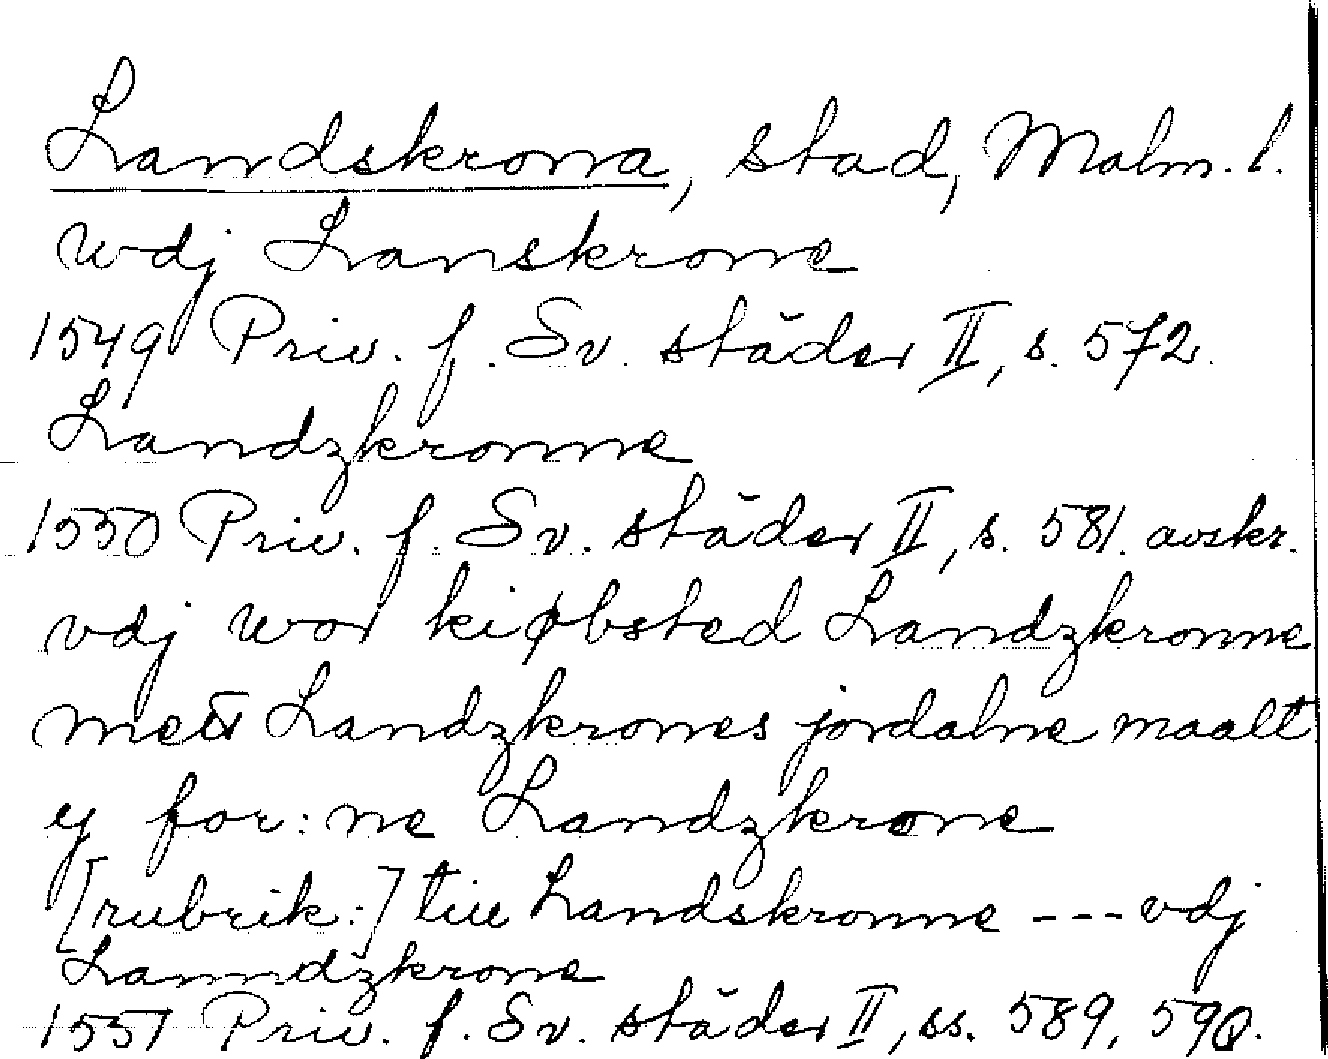 Landskrona, stad, Malm. l.
wdj Lanskrone
1549 Priv. f. Sv. städer II, s. 572.
Landzkronne
1550 Priv. f. Sv. städer II, s. 581. avskr.
vdj wor kiøbsted Landzkronne
mett Landzkrones jordalne maalt
y for:ne Landzkrone
[rubrik:] till Landskronne --- vdj
Lanndzkrone
1551 Priv. f. Sv. städer II, ss. 589, 590.